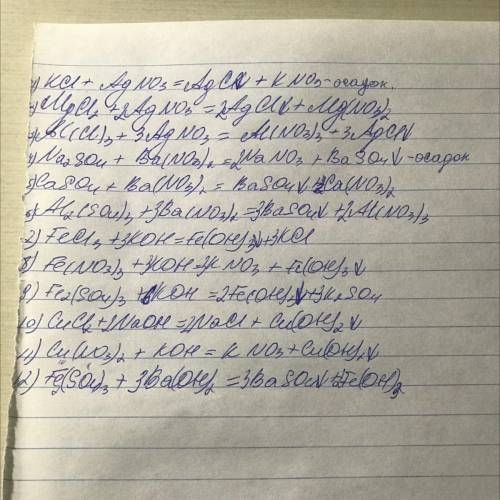 1) KCl + AgNO3 = AgCl↓ + KNO3 - осадок.
2) MgCl2 + 2AgNO3 = 2AgCl↓ + Mg(NO3)2
3) Al(Cl)3 + 3AgNO3 = Al(NO3)3 + 3AgCl↓
4) Na2SO4 + Ba(NO3)2 = 2NaNO3 + BaSO4↓ - осадок
5) CaSO4 + Ba(NO3)2 = BaSO4↓ + Ca(NO3)2
6) Al2(SO4)3 + 3Ba(NO3)2 = 3BaSO4↓ + 2Al(NO3)3
7) FeCl3 + 3KOH = Fe(OH)3↓ + 3KCl
8) Fe(NO3)3 + 3KOH = 3KNO3 + Fe(OH)3↓
9) Fe2(SO4)3 + 6KOH = 2Fe(OH)3↓ + 3K2SO4
10) CuCl2 + 2NaOH = 2NaCl + Cu(OH)2↓
11) Cu(NO3)2 + KOH = KNO3 + Cu(OH)2↓
12) Fe2(SO4)3 + 3Ba(OH)2 = 3BaSO4↓ + 2Fe(OH)3